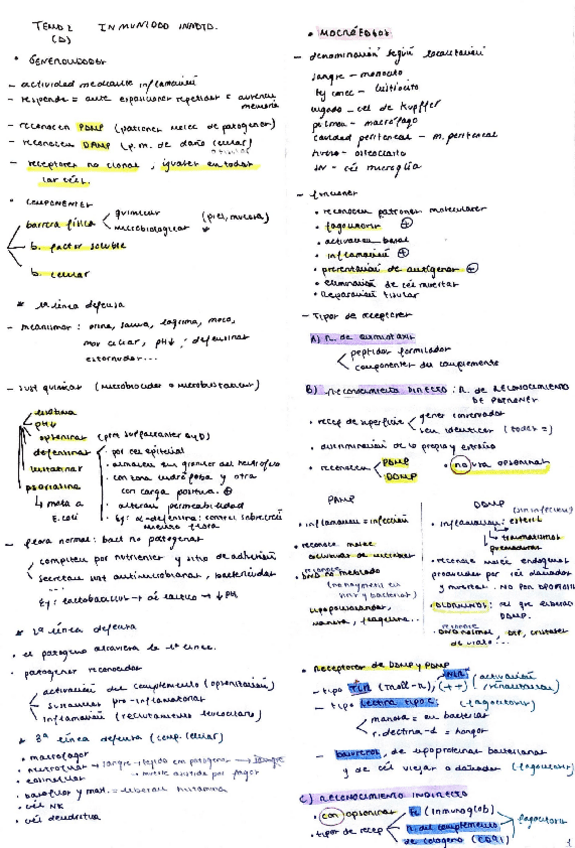 TEMA 2 INMUNIDAD INNATA
(D)
• GENERALIDADES
- actividad mediante inflamación
- responde = ante exposiciones repetidas = ausencia memoria
- reconocen PAMP (patrones molec de patógenos)
- reconocen DAMP (p.m. de daño celular)
- receptores no clonal, iguales en todas las céls.
• COMPONENTES
barrera física < químicas (piel, mucosa)
microbiológicas
b. factor soluble
b. celular
* 1ª línea defensa
- mecanismos: orina, saliva, lágrima, moco, mov ciliar, pH↓, defensinas
estornudos...
- sust químicas (microbicidas o microbiostáticas)
lisozima
pH↓
opsoninas (prot surfactantes A y D)
defensinas
• por cél epitelial
• almacén en gránulos del neutrófilo
• con zona hidrófoba y otra con carga positiva. ⊕
• alteran permeabilidad
• Ej: α-defensina: control sobrecrec nuestra flora
psoriasina
↳ mata a E.coli
- flora normal: bact no patógenas
compiten por nutrientes y sitio de adhesión
secretan sust antimicrobianas, bactericidas
...
Ej: lactobacillus → ác láctico → ↓pH
* 2ª línea defensa
• el patógeno atraviesa la 1ª línea.
• patógenos reconocidos
activación del complemento (opsonización)
sustancias pro-inflamatorias
inflamación (reclutamiento leucocitos)
* 3ª línea defensa (comp. celular)
• macrófagos
• neutrófilos → sangre → tejido con patógenos → sangre
→ muere asistida por fagos
• eosinófilos
• basófilos y mast. = liberan histamina
• cél NK
• cél dendrítica
• MACRÓFAGOS
- denominación según localización
sangre - monocito
tej conec - histiocito
hígado - cél de Kupffer
pulmón - macrófago
cavidad peritoneal - m. peritoneal
hueso - osteoclasto
SN - cél microglía
- funciones
• reconocen patrones moleculares
• fagocitosis ⊕
• activación basal
• inflamación ⊕
• presentación de antígenos ⊕
• eliminación de cél muertas
• reparación tisular
- Tipos de receptores
A) R. de quimiotaxis
péptidos formilados
componentes del complemento
B) RECONOCIMIENTO DIRECTO: R. de RECONOCIMIENTO DE PATRONES
• recep de superficie < genes conservados
son idénticos (todos =)
• discriminación de lo propio y extraño
• reconocen < PAMP
DAMP
• no usa opsoninas
PAMP
• inflamación = infección
• reconoce molec
• reconoce DNA no metilado
DAMP (sin infección)
• inflamación: estéril
→ traumatismos
• reconoce molec endógenas producidas por cél dañadas y muertas.
• ALARMINAS: cél que liberan DAMP.
• Receptores de DAMP y PAMP
- tipo TLR (Toll-R), (++) NLR (activación
- tipo lectina tipo C: (fagocitosis)
manosa = en bacterias
r. dectina-1 = hongos
- barrenderos, de lipoproteínas bacterianas
y de cél viejas o dañadas (fagocitosis)
C) RECONOCIMIENTO INDIRECTO
• con opsoninas
• tipos de recep < Fc (inmunoglob)
R. del complemento
de colágeno (CD91)
fagocitosis
1